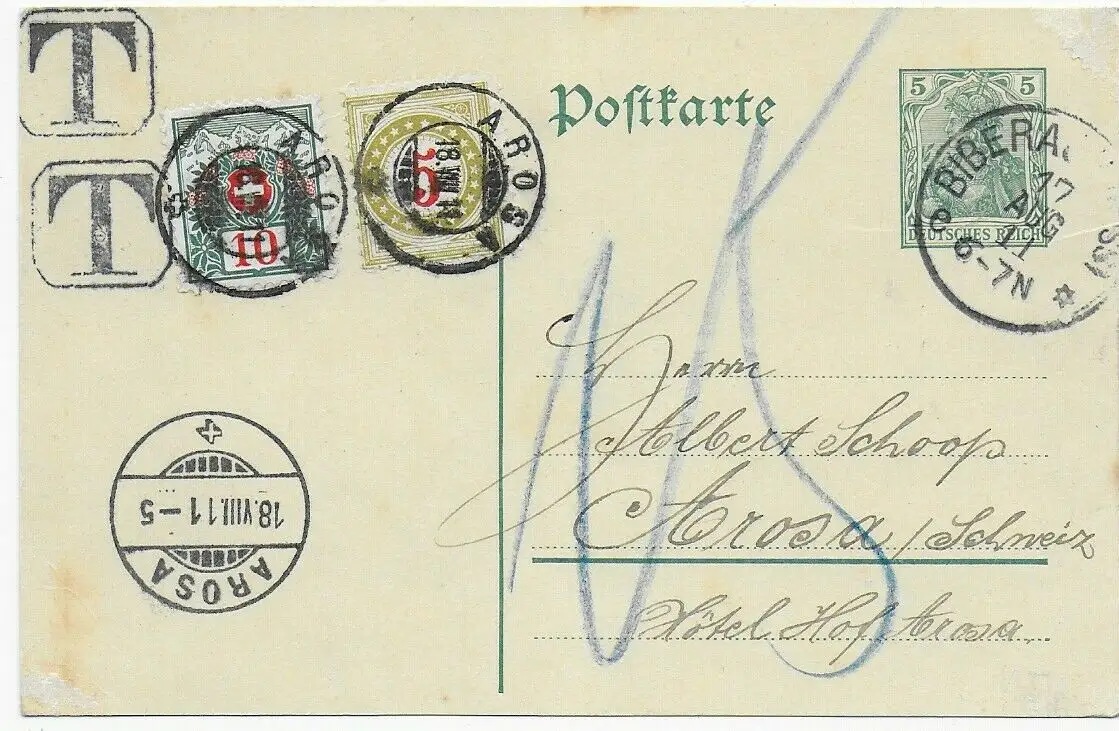 T
T
10
AROSA
15
AROSA
18.VIII.11
Postkarte
5 5
DEUTSCHES REICH
BIBERA
17
AUG
11
6-7N
15
Herrn
Albert Schoop
Arosa / Schweiz
Hôtel Hof Arosa
18.VIII.11-5
AROSA